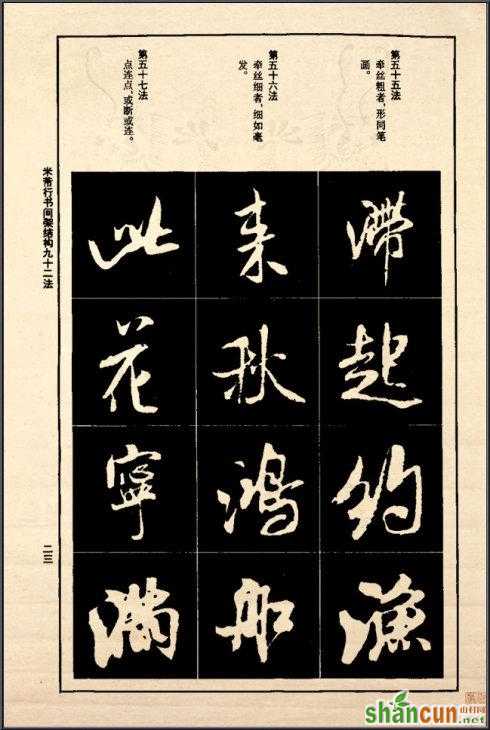 第五十五法
牵丝粗者，形同笔
画。
第五十六法
牵丝细者，细如毫
发。
第五十七法
点连点，或断或连。
滞起约渔
来秋鸿船
此花寧满
米芾行书间架结构九十二法
二三
shancun
山村网
.net